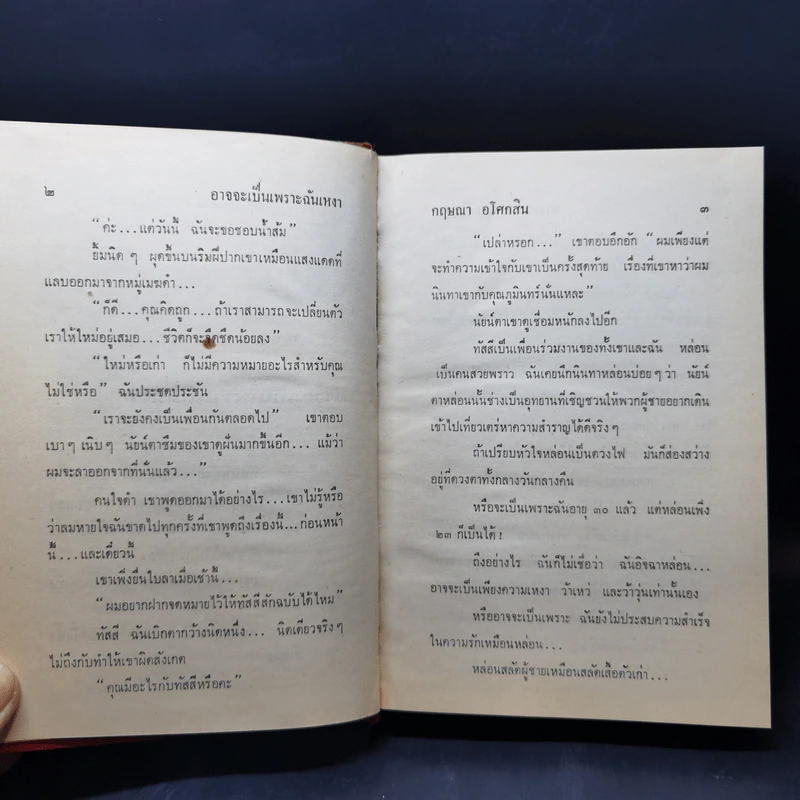 ๒ อาจจะเป็นเพราะฉันเหงา
“ค่ะ...แต่วันนี้ ฉันจะขอชอบน้ำส้ม”
ยิ้มนิด ๆ ผุดขึ้นบนริมฝีปากเขาเหมือนแสงแดดที่
แลบออกมาจากหมู่เมฆดำ...
“ก็ดี...คุณคิดถูก...ถ้าเราสามารถจะเปลี่ยนตัว
เราให้ใหม่อยู่เสมอ...ชีวิตก็จะจืดชืดน้อยลง”
“ใหม่หรือเก่า ก็ไม่มีความหมายอะไรสำหรับคุณ
ไม่ใช่หรือ” ฉันประชดประชัน
“เราจะยังคงเป็นเพื่อนกันตลอดไป” เขาตอบ
เบา ๆ เนิบ ๆ นัยน์ตาซึมของเขาดูผันมากขึ้นอีก... แม้ว่า
ผมจะลาออกจากที่นั่นแล้ว...”
คนใจดำ เขาพูดออกมาได้อย่างไร...เขาไม่รู้หรือ
ว่าลมหายใจฉันขาดไปทุกครั้งที่เขาพูดถึงเรื่องนี้...ก่อนหน้า
นี้...และเดี๋ยวนี้
เขาเพิ่งยื่นใบลาเมื่อเช้านี้...
“ผมอยากฝากจดหมายไว้ให้ทัสสีสักฉบับได้ไหม”
ทัสสี ฉันเบิกตากว้างนิดหนึ่ง... นิดเดียวจริง ๆ
ไม่ถึงกับทำให้เขาผิดสังเกต
“คุณมีอะไรกับทัสสีหรือคะ”
กฤษณา อโศกสิน ๓
“เปล่าหรอก...” เขาตอบอึกอัก “ผมเพียงแต่
จะทำความเข้าใจกับเขาเป็นครั้งสุดท้าย เรื่องที่เขาหาว่าผม
นินทาเขากับคุณภูมินทร์นั่นแหละ”
นัยน์ตาเขาดูเชื่อมหนักลงไปอีก
ทัสสีเป็นเพื่อนร่วมงานของทั้งเขาและฉัน หล่อน
เป็นคนสวยพราว ฉันเคยนึกนินทาหล่อนบ่อย ๆ ว่า นัยน์
ตาหล่อนนั้นช่างเป็นอุทยานที่เชิญชวนให้พวกผู้ชายอยากเดิน
เข้าไปเที่ยวเตร่หาความสำราญได้ดีจริง ๆ
ถ้าเปรียบหัวใจหล่อนเป็นดวงไฟ มันก็ส่องสว่าง
อยู่ที่ดวงตาทั้งกลางวันกลางคืน
หรือจะเป็นเพราะฉันอายุ ๓๐ แล้ว แต่หล่อนเพิ่ง
๒๓ ก็เป็นได้!
ถึงอย่างไร ฉันก็ไม่เชื่อว่า ฉันอิจฉาหล่อน...
อาจจะเป็นเพียงความเหงา ว้าเหว่ และว้าวุ่นเท่านั้นเอง
หรืออาจจะเป็นเพราะ ฉันยังไม่ประสบความสำเร็จ
ในความรักเหมือนหล่อน...
หล่อนสลัดผู้ชายเหมือนสลัดเสื้อตัวเก่า...